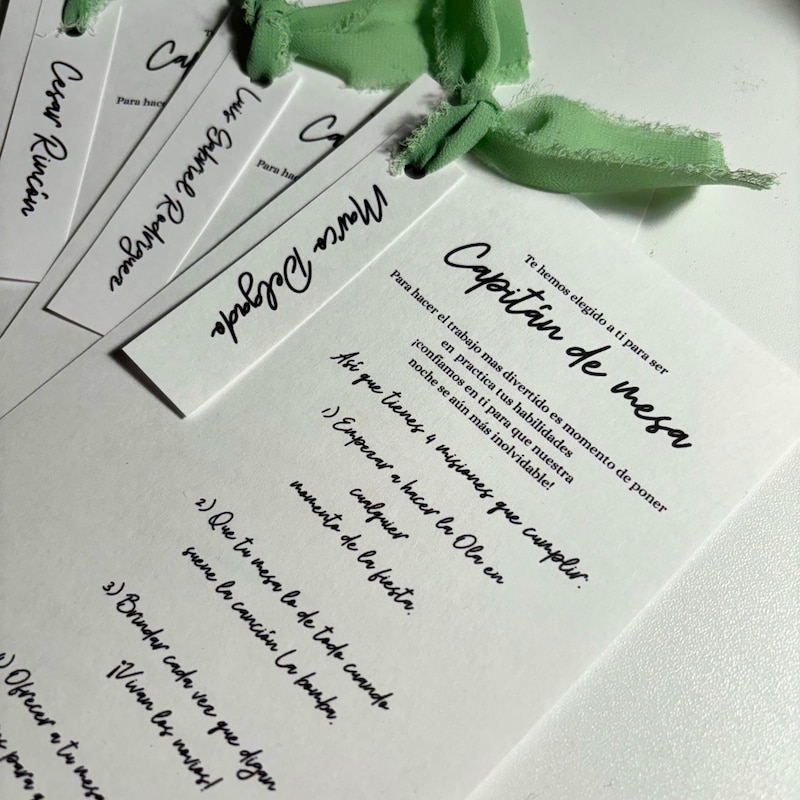 Cesar Rincón
Para hace
Luis Gabriel Rodriguez
Para hac
Marco Delgado
Te hemos elegido a ti para ser
Capitán de mesa
Para hacer el trabajo mas divertido es momento de poner
en practica tus habilidades
¡confiamos en ti para que nuestra
noche se aún más inolvidable!
Así que tienes 4 misiones que cumplir:
1) Empezar a hacer la Ola en
cualquier
momento de la fiesta.
2) Que tu mesa lo de todo cuando
suene la canción La bomba.
3) Brindar cada vez que digan
¡Vivan los novios!
4) Ofrecer a tu mesa
para